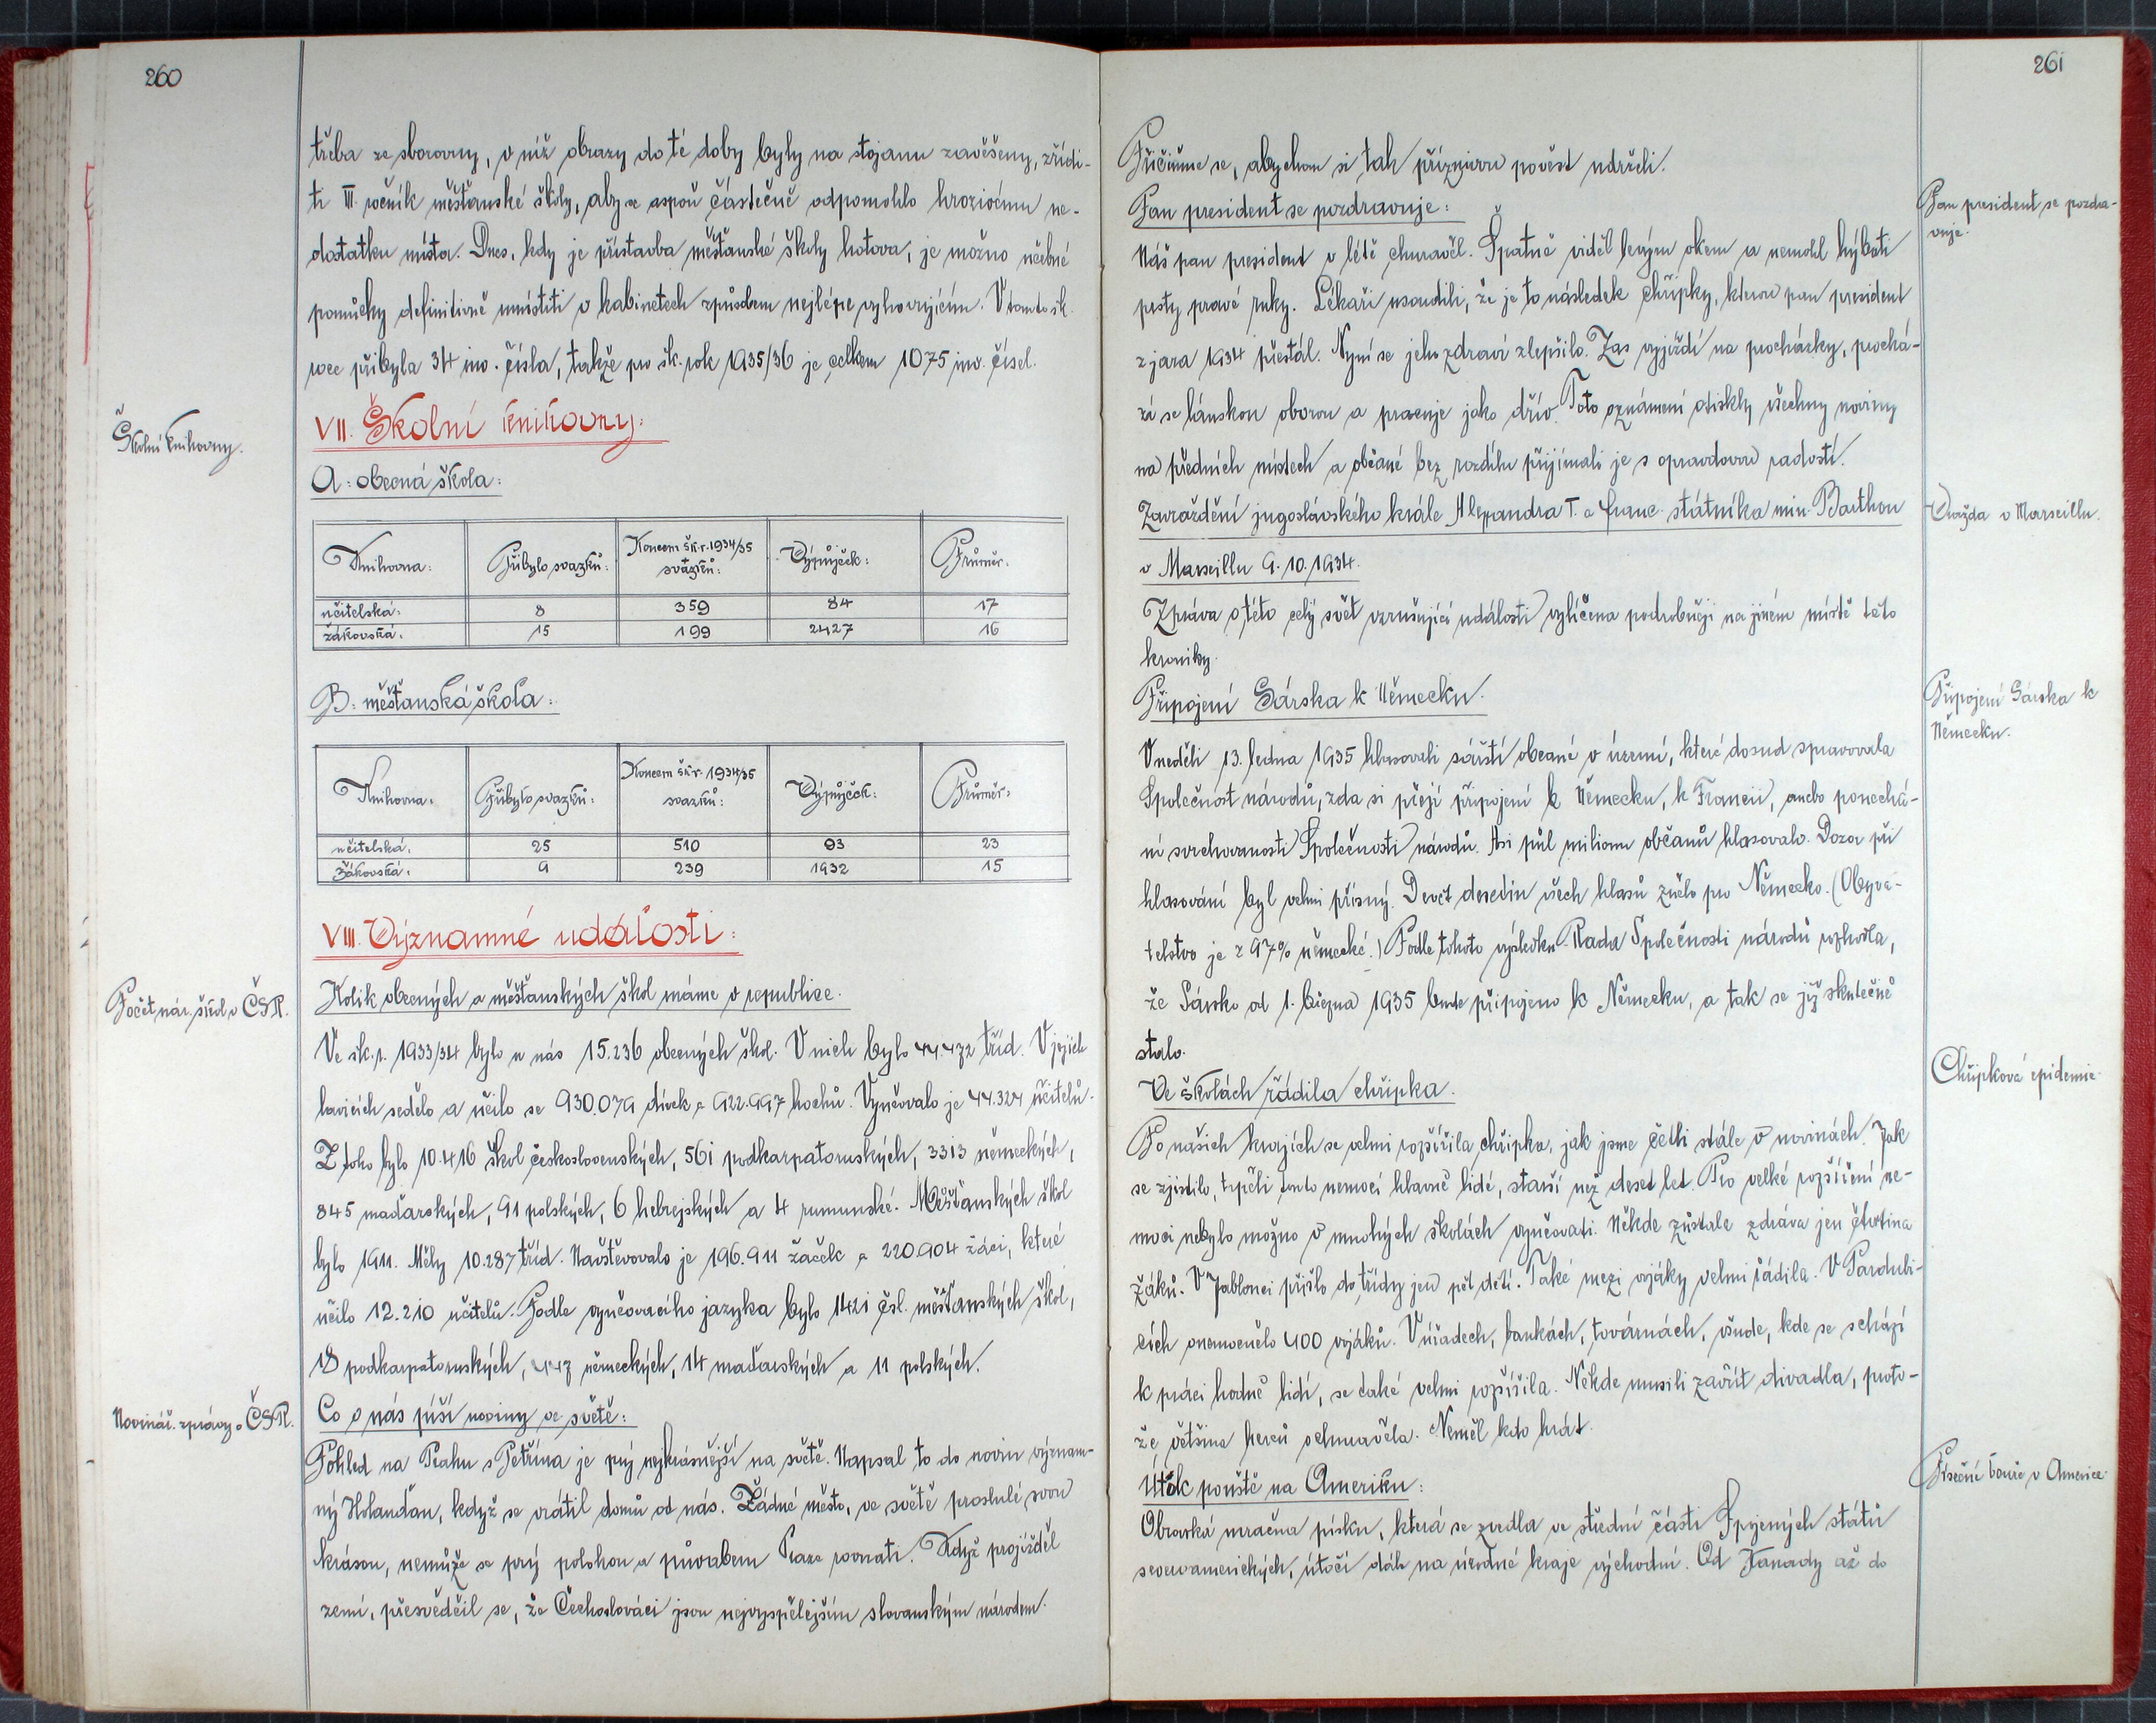 260
třeba ze sborovny, v níž obrazy do té doby byly na stojanu zavěšeny, zřídi-
ti III. ročník měšťanské školy, aby se aspoň částečně odpomohlo hrozivému ne-
dostatku místa. Dnes, kdy je přístavba měšťanské školy hotova, je možno učebné
pomůcky definitivně umístiti v kabinetech způsobem nejlépe vyhovujícím. V tomto šk.
roce přibyla 34 inv. čísla, takže pro šk. rok 1935/36 je celkem 1075 inv. čísel.
Školní knihovny.
VII. Školní knihovny:
A: obecná škola:
Knihovna: Přibylo svazků: Koncem šk. r. 1934/35 svazků: Výpůjček: Průměr:
učitelská: 8 359 84 17
žákovská: 15 199 2427 16
B: měšťanská škola:
Knihovna: Přibylo svazků: Koncem šk. r. 1934/35 svazků: Výpůjček: Průměr:
učitelská: 25 510 93 23
žákovská: 9 239 1932 15
VIII. Významné události:
Počet nár. škol v ČSR.
Kolik obecných a měšťanských škol máme v republice.
Ve šk. r. 1933/34 bylo u nás 15.236 obecných škol. V nich bylo 44.472 tříd. V jejich
lavicích sedělo a učilo se 930.079 dívek a 922.997 hochů. Vyučovalo je 44.324 učitelů.
Z toho bylo 10.416 škol československých, 561 podkarpatoruských, 3313 německých,
845 maďarských, 91 polských, 6 hebrejských a 4 rumunské. Měšťanských škol
bylo 1911. Měly 10.287 tříd. Navštěvovalo je 196.911 žaček a 220.904 žáci, které
učilo 12.210 učitelů. Podle vyučovacího jazyka bylo 1421 čsl. měšťanských škol,
18 podkarpatoruských, 447 německých, 14 maďarských a 11 polských.
Novinář. zprávy o ČSR.
Co o nás píší noviny ve světě:
Pohled na Prahu s Petřína je prý nejkrásnější na světě. Napsal to do novin význam-
ný Holanďan, když se vrátil domů od nás. Žádné město, ve světě proslulé svou
krásou, nemůže se prý polohou a půvabem Praze rovnati. Když projížděl
zemí, přesvědčil se, že Čechoslováci jsou nejvyspělejším slovanským národem.
261
Přičiňme se, abychom si tak příznivou pověst udrželi.
Pan president se pozdravuje:
Pan president se pozdra-
vuje.
Náš pan president v létě churavěl. Špatně viděl levým okem a nemohl hýbati
prsty pravé ruky. Lékaři usoudili, že je to následek chřipky, kterou pan president
z jara 1934 přestál. Nyní se jeho zdraví zlepšilo. Zas vyjíždí na procházky, prochá-
zí se lánskou oborou a pracuje jako dřív. Toto oznámení otiskly všechny noviny
na předních místech a občané bez rozdílu přijímali je s opravdovou radostí.
Zavraždění jugoslávského krále Alexandra I. a franc. státníka min. Barthou
v Marseillu 9. 10. 1934.
Vražda v Marseillu.
Zpráva o této celý svět vzrušující události vylíčena podrobněji na jiném místě této
kroniky.
Připojení Sárska k Německu.
Připojení Sárska k
Německu.
V neděli 13. ledna 1935 hlasovali sárští občané v území, které dosud spravovala
Společnost národů, zda si přejí připojení k Německu, k Francii, anebo ponechá-
ní svrchovanosti Společnosti národů. Asi půl milionu občanů hlasovalo. Dozor při
hlasování byl velmi přísný. Devět desetin všech hlasů znělo pro Německo. (Obyva-
telstvo je z 97% německé.) Podle tohoto výsledku Rada Společnosti národů rozhodla,
že Sársko od 1. března 1935 bude připojeno k Německu, a tak se již skutečně
stalo.
Ve školách řádila chřipka.
Chřipková epidemie.
Po našich krajích se velmi rozšířila chřipka, jak jsme četli stále v novinách. Jak
se zjistilo, trpěli touto nemocí hlavně lidé, starší než deset let. Pro velké rozšíření ne-
moci nebylo možno v mnohých školách vyučovati. Někde zůstala zdráva jen čtvrtina
žáků. V Jablonci přišlo do třídy jen pět dětí. Také mezi vojáky velmi řádila. V Pardubi-
cích onemocnělo 400 vojáků. V úřadech, bankách, továrnách, všude, kde se schází
k práci hodně lidí, se také velmi rozšířila. Někde musili zavřít divadla, proto-
že většina herců ochuravěla. Neměl kdo hrát.
Útok pouště na Ameriku:
Písečné bouře v Americe.
Obrovská mračna písku, která se zvedla ve střední části Spojených států
severoamerických, útočí dále na úrodné kraje východní. Od Kanady až do